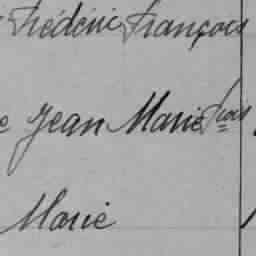 Frédéric François
e Jean Marie Frçois
Marie